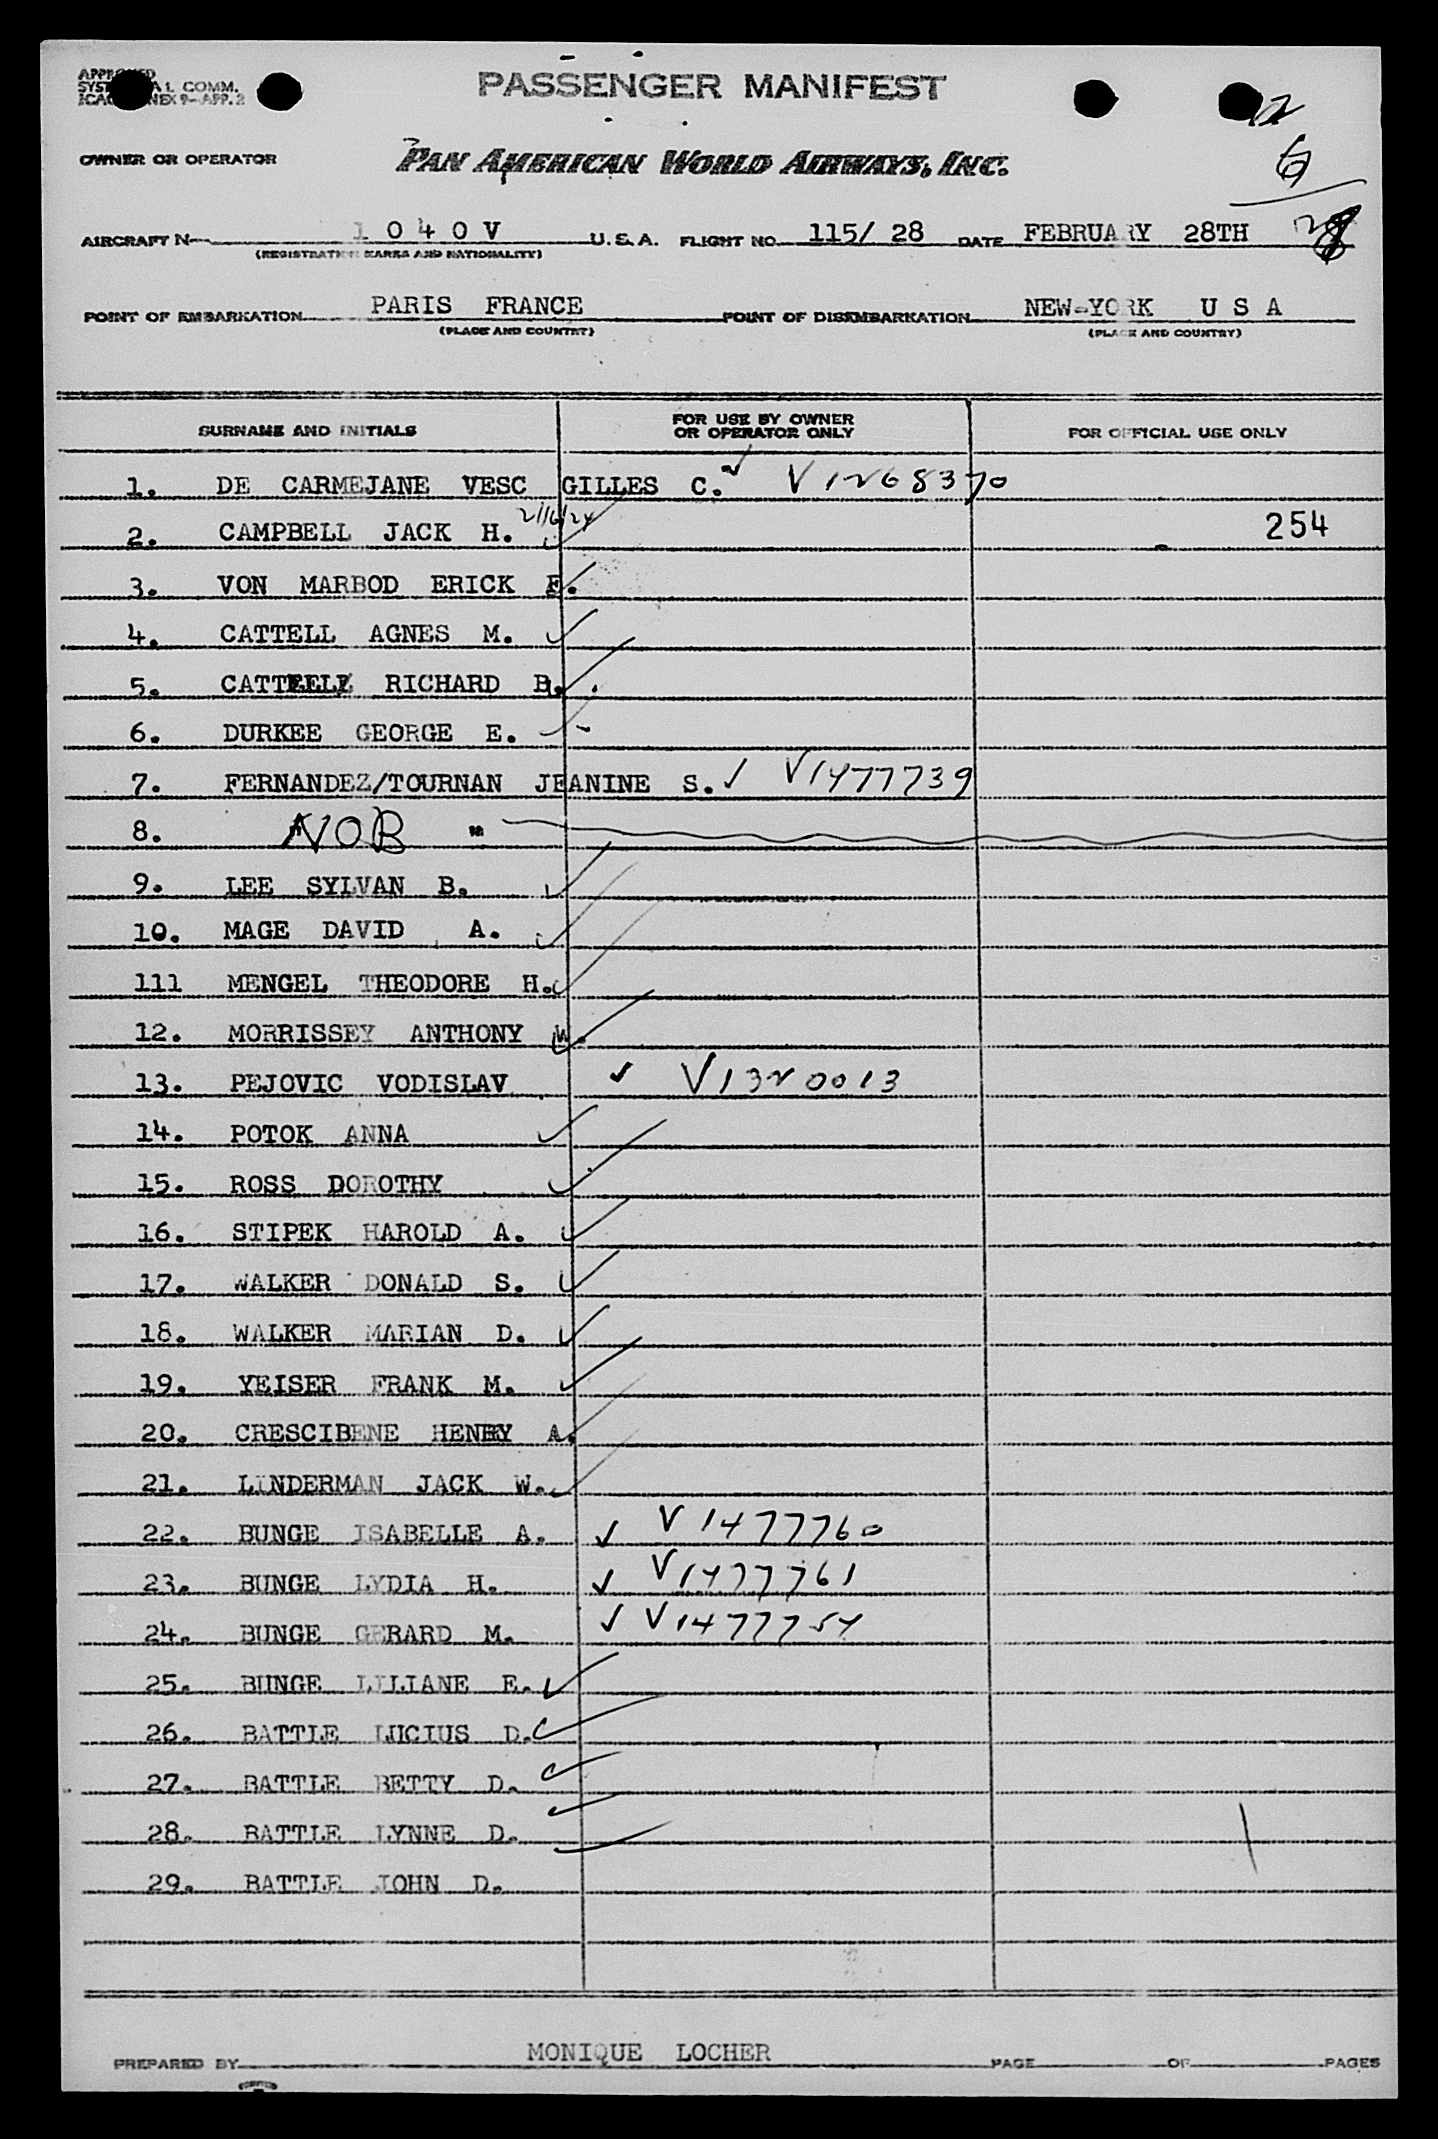 PASSENGER MANIFEST
OWNER OR OPERATOR PAN AMERICAN WORLD AIRWAYS, INC.
6
AIRCRAFT N 1 0 4 0 V U.S.A. FLIGHT NO. 115/ 28 DATE FEBRUARY 28TH
(REGISTRATION MARKS AND NATIONALITY)
POINT OF EMBARKATION PARIS FRANCE POINT OF DISEMBARKATION NEW-YORK U S A
(PLACE AND COUNTRY) (PLACE AND COUNTRY)
SURNAME AND INITIALS FOR USE BY OWNER OR OPERATOR ONLY FOR OFFICIAL USE ONLY
1. DE CARMEJANE VESC GILLES C. V1268370
2. CAMPBELL JACK H. 254
3. VON MARBOD ERICK F.
4. CATTELL AGNES M.
5. CATTELL RICHARD B.
6. DURKEE GEORGE E.
7. FERNANDEZ/TOURNAN JEANINE S. V1477739
8. NOB "
9. LEE SYLVAN B.
10. MAGE DAVID A.
111 MENGEL THEODORE H.
12. MORRISSEY ANTHONY W.
13. PEJOVIC VODISLAV V1320013
14. POTOK ANNA
15. ROSS DOROTHY
16. STIPEK HAROLD A.
17. WALKER DONALD S.
18. WALKER MARIAN D.
19. YEISER FRANK M.
20. CRESCIBENE HENRY A.
21. LINDERMAN JACK W.
22. BUNGE ISABELLE A. V1477760
23. BUNGE LYDIA H. V1477761
24. BUNGE GERARD M. V1477754
25. BUNGE LILIANE E.
26. BATTLE LUCIUS D.
27. BATTLE BETTY D.
28. BATTLE LYNNE D.
29. BATTLE JOHN D.
PREPARED BY MONIQUE LOCHER PAGE OF PAGES